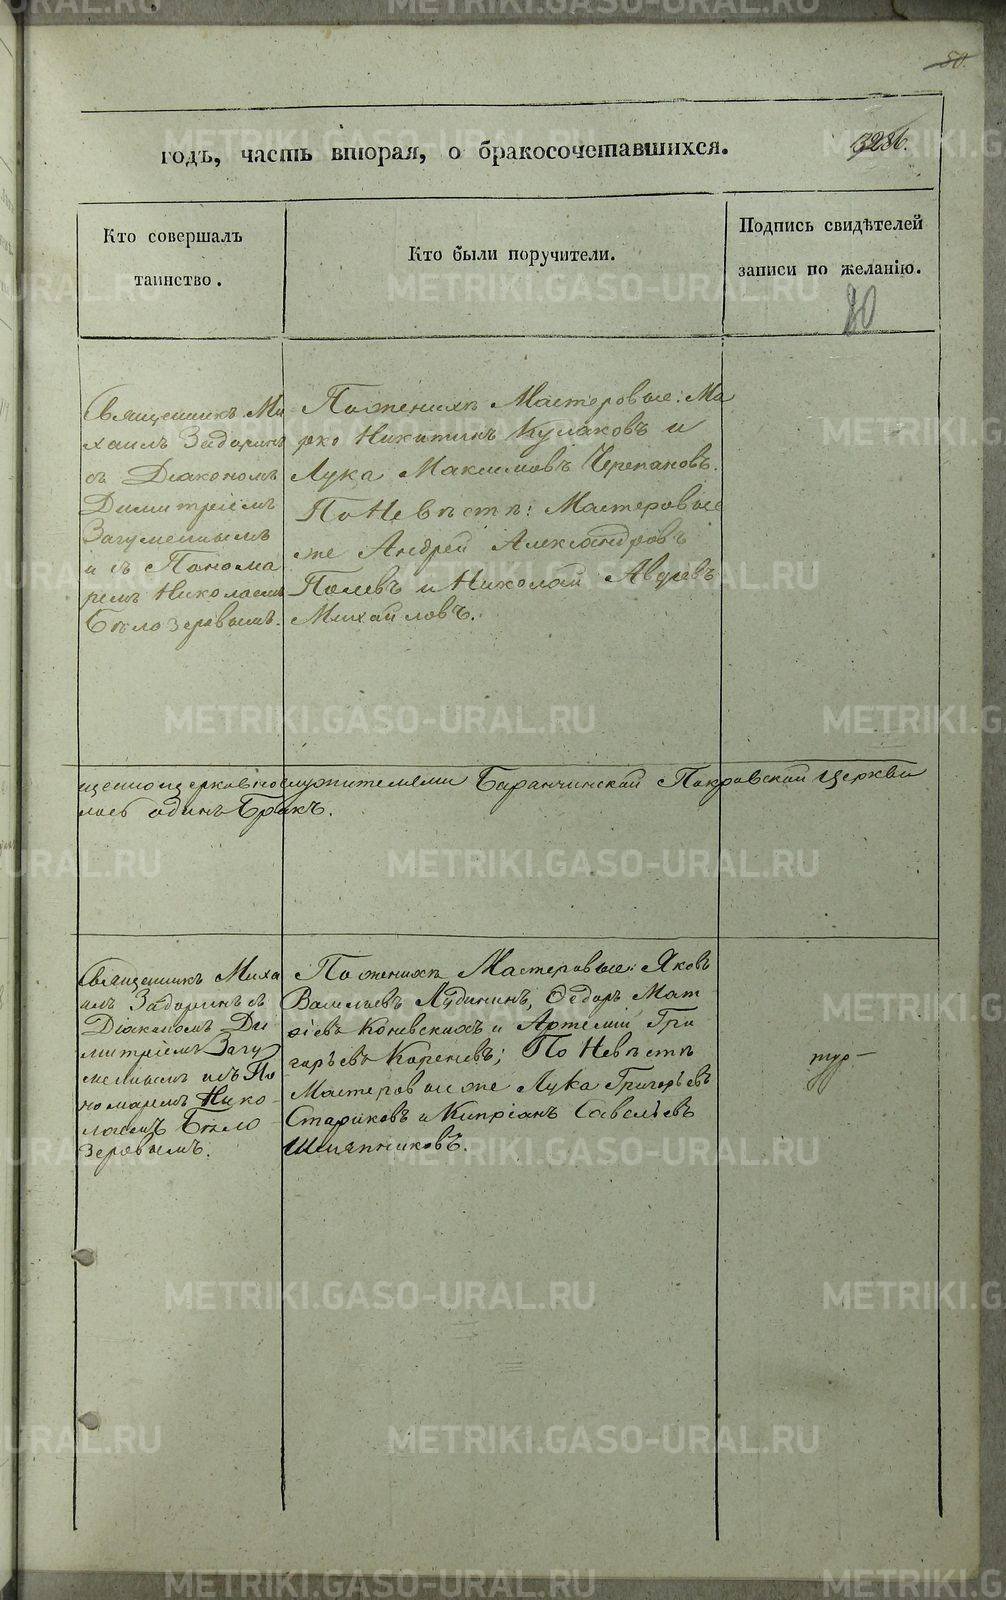 50.
годъ, часть вторая, о бракосочетавшихся.
Кто совершалъ
таинство.
Кто были поручители.
Подпись свидѣтелей
записи по желанію.
80
Священникъ Ми
хаилъ Задоринъ
съ Діакономъ
Димитріемъ
Загуменнымъ
и съ Понома
ремъ Николаемъ
Бѣлозеровымъ.
По женихѣ Мастеровые: Ма
рко Никитинъ Кулаковъ и
Лука Максимовъ Черепановъ.
По Невѣстѣ: Мастеровые
же Андрей Александровъ
Полевъ и Николай
Михайловъ.
щенноцерковнослужителями Баранчинской Покровской Церкви
лось одинъ Бракъ.
Священникъ Миха
илъ Задоринъ съ
Діакономъ Ди
митріемъ Загу
меннымъ и съ По
номаремъ Нико-
лаемъ Бѣло
зеровымъ.
По женихѣ Мастеровые: Яковъ
Васильевъ Ѳедоръ Мат
ѳіевъ Коневскихъ и Артемій Гри
горьевъ Кореневъ; По Невѣстѣ
Мастеровые же Лука Григорьевъ
Стариковъ и Кипріанъ Савельевъ
Шляпниковъ.
METRIKI.GASO-URAL.RU